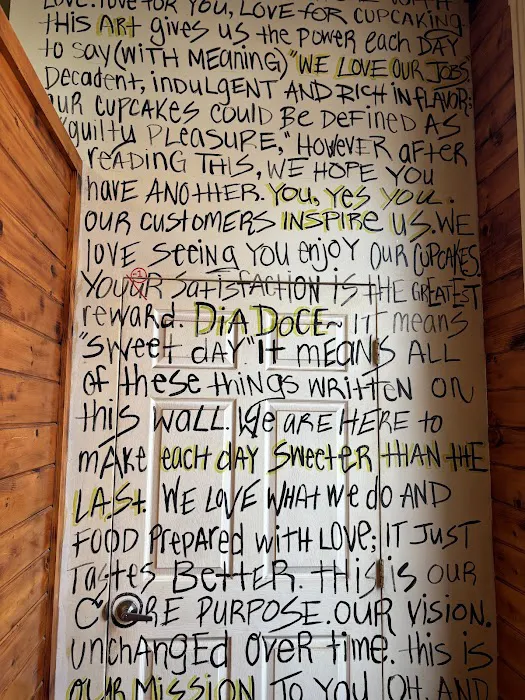 LOVE. LOVE FOR YOU, LOVE FOR CUPCAKING
THIS ART gives us the POWER each DAY
to say (WITH MEANING) "WE LOVE OUR JOBS.
Decadent, INDULGENT AND RICH IN FLAVOR;
OUR CUPCAKES COULD BE DEFINED AS
"guilty PLEASURE," HOWEVER AFTER
reADING THIS, WE HOPE YOU
have ANOTHER. YOU, YES YOU.
OUR CUSTOMERS INSPIRE US. WE
love Seeing YOU enjoy OUR CUPCAKES.
YOUR SATISFACTION IS THE GREATEST
reward. DIA DOCE~ IT means
"Sweet dAY" It MEANS ALL
of these things WRITTEN ON
this WALL. We ARE HERE to
mAKE each dAY Sweeter THAN THE
LAST. WE LOVE WHAT We do AND
FOOD Prepared WITH LOVE; IT JUST
TAStes BETTER. this is OUR
CORE PURPOSE. OUR VISION.
UNCHANGED OVER time. this is
OUR MISSION TO YOU (OH AND